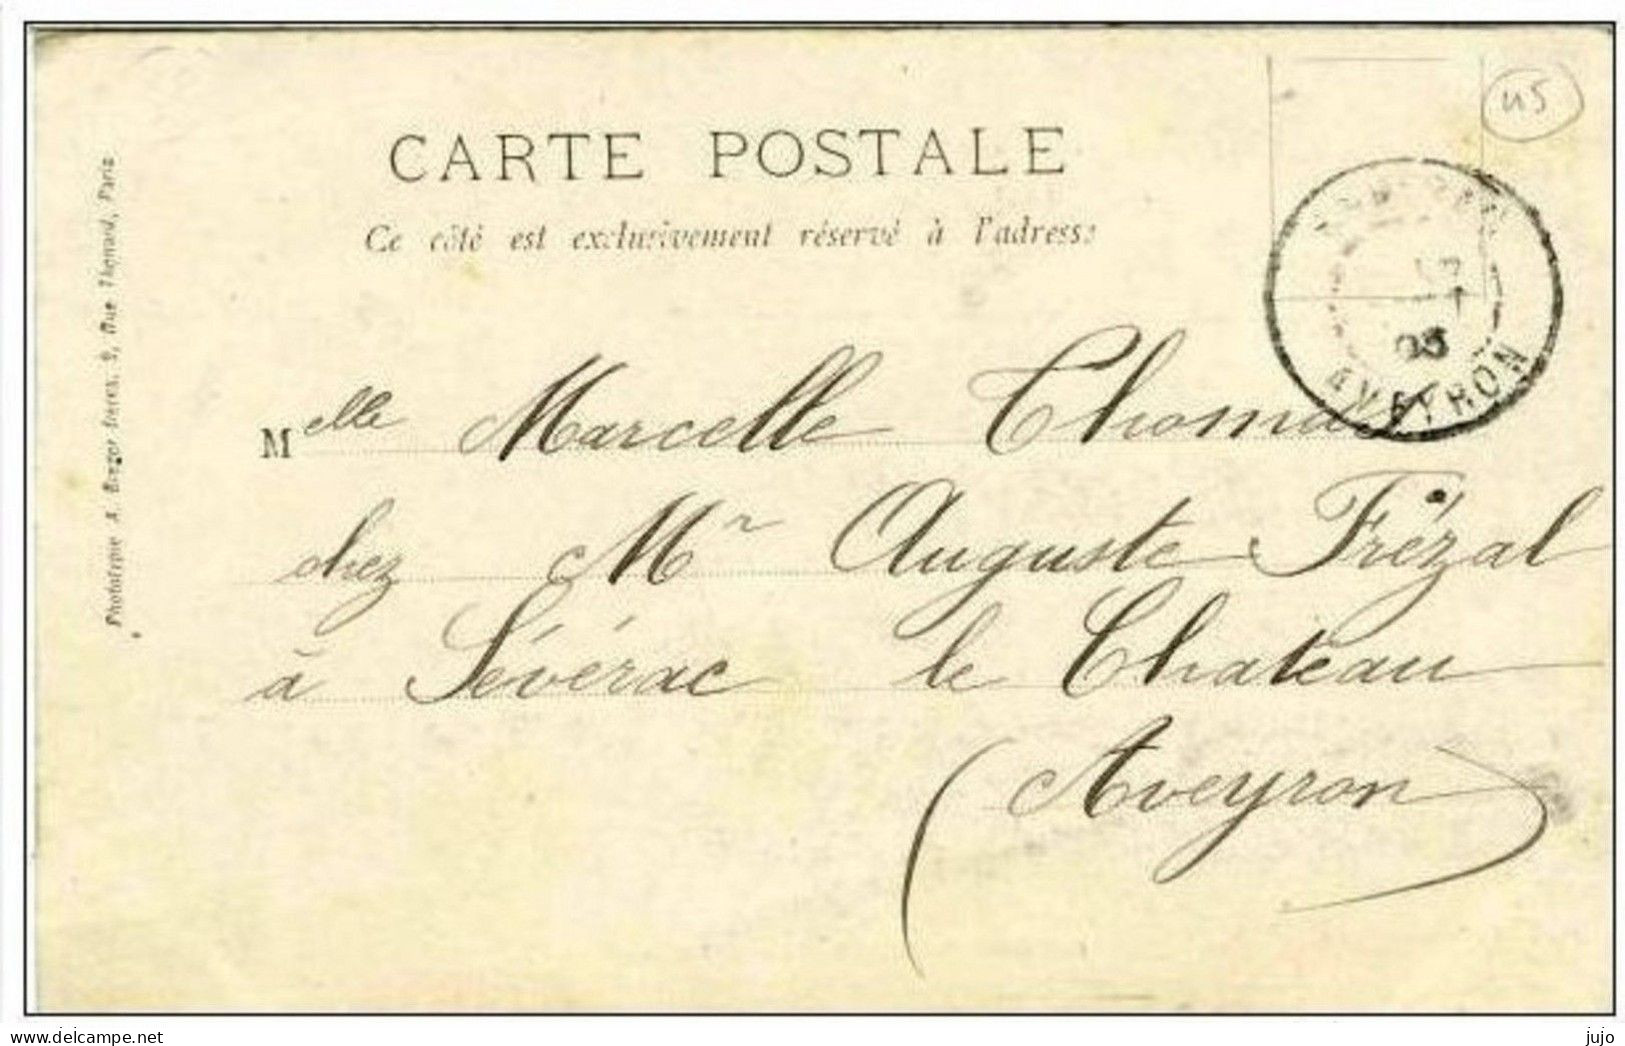 CARTE POSTALE
Ce côté est exclusivement réservé à l'adresse
Phototypie A. Breger frères, 9, Rue Thenard, Paris
45
05
AVEYRON
Melle Marcelle Thomas
chez Mr Auguste Frézal
à Sévérac le Chateau
(Aveyron)
www.delcampe.net
jujo